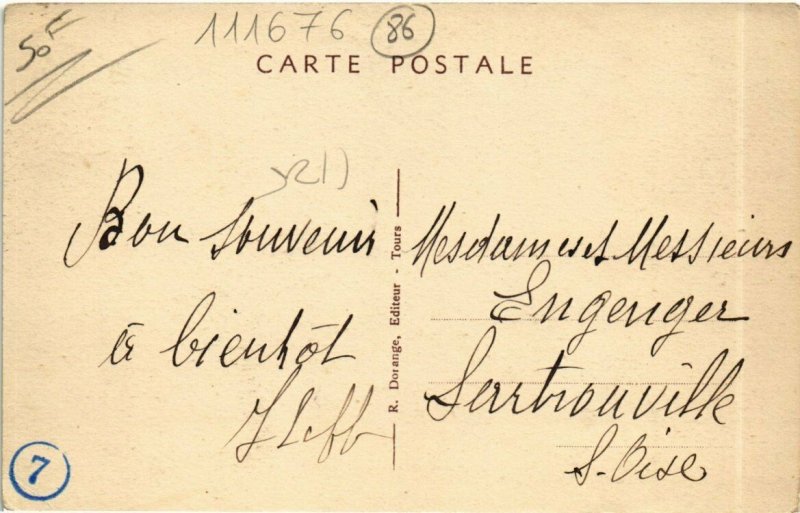 50 F
111676 86
CARTE POSTALE
Bon souvenir
à bientôt
R. Dorange, Editeur - Tours
Mesdames et Messieurs
Engenger
Sartrouville
S. Oise
7